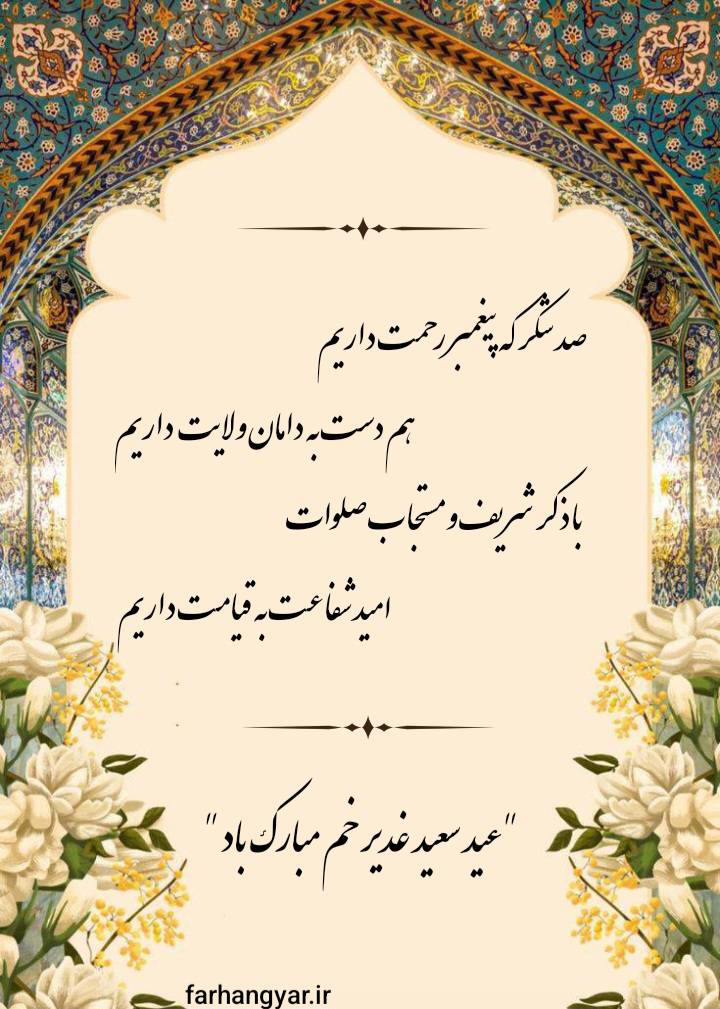 صد شکر که پیغمبر رحمت داریم
هم دست به دامان ولایت داریم
با ذکر شریف و مستجاب صلوات
امید شفاعت به قیامت داریم
"عید سعید غدیر خم مبارک باد"
farhangyar.ir